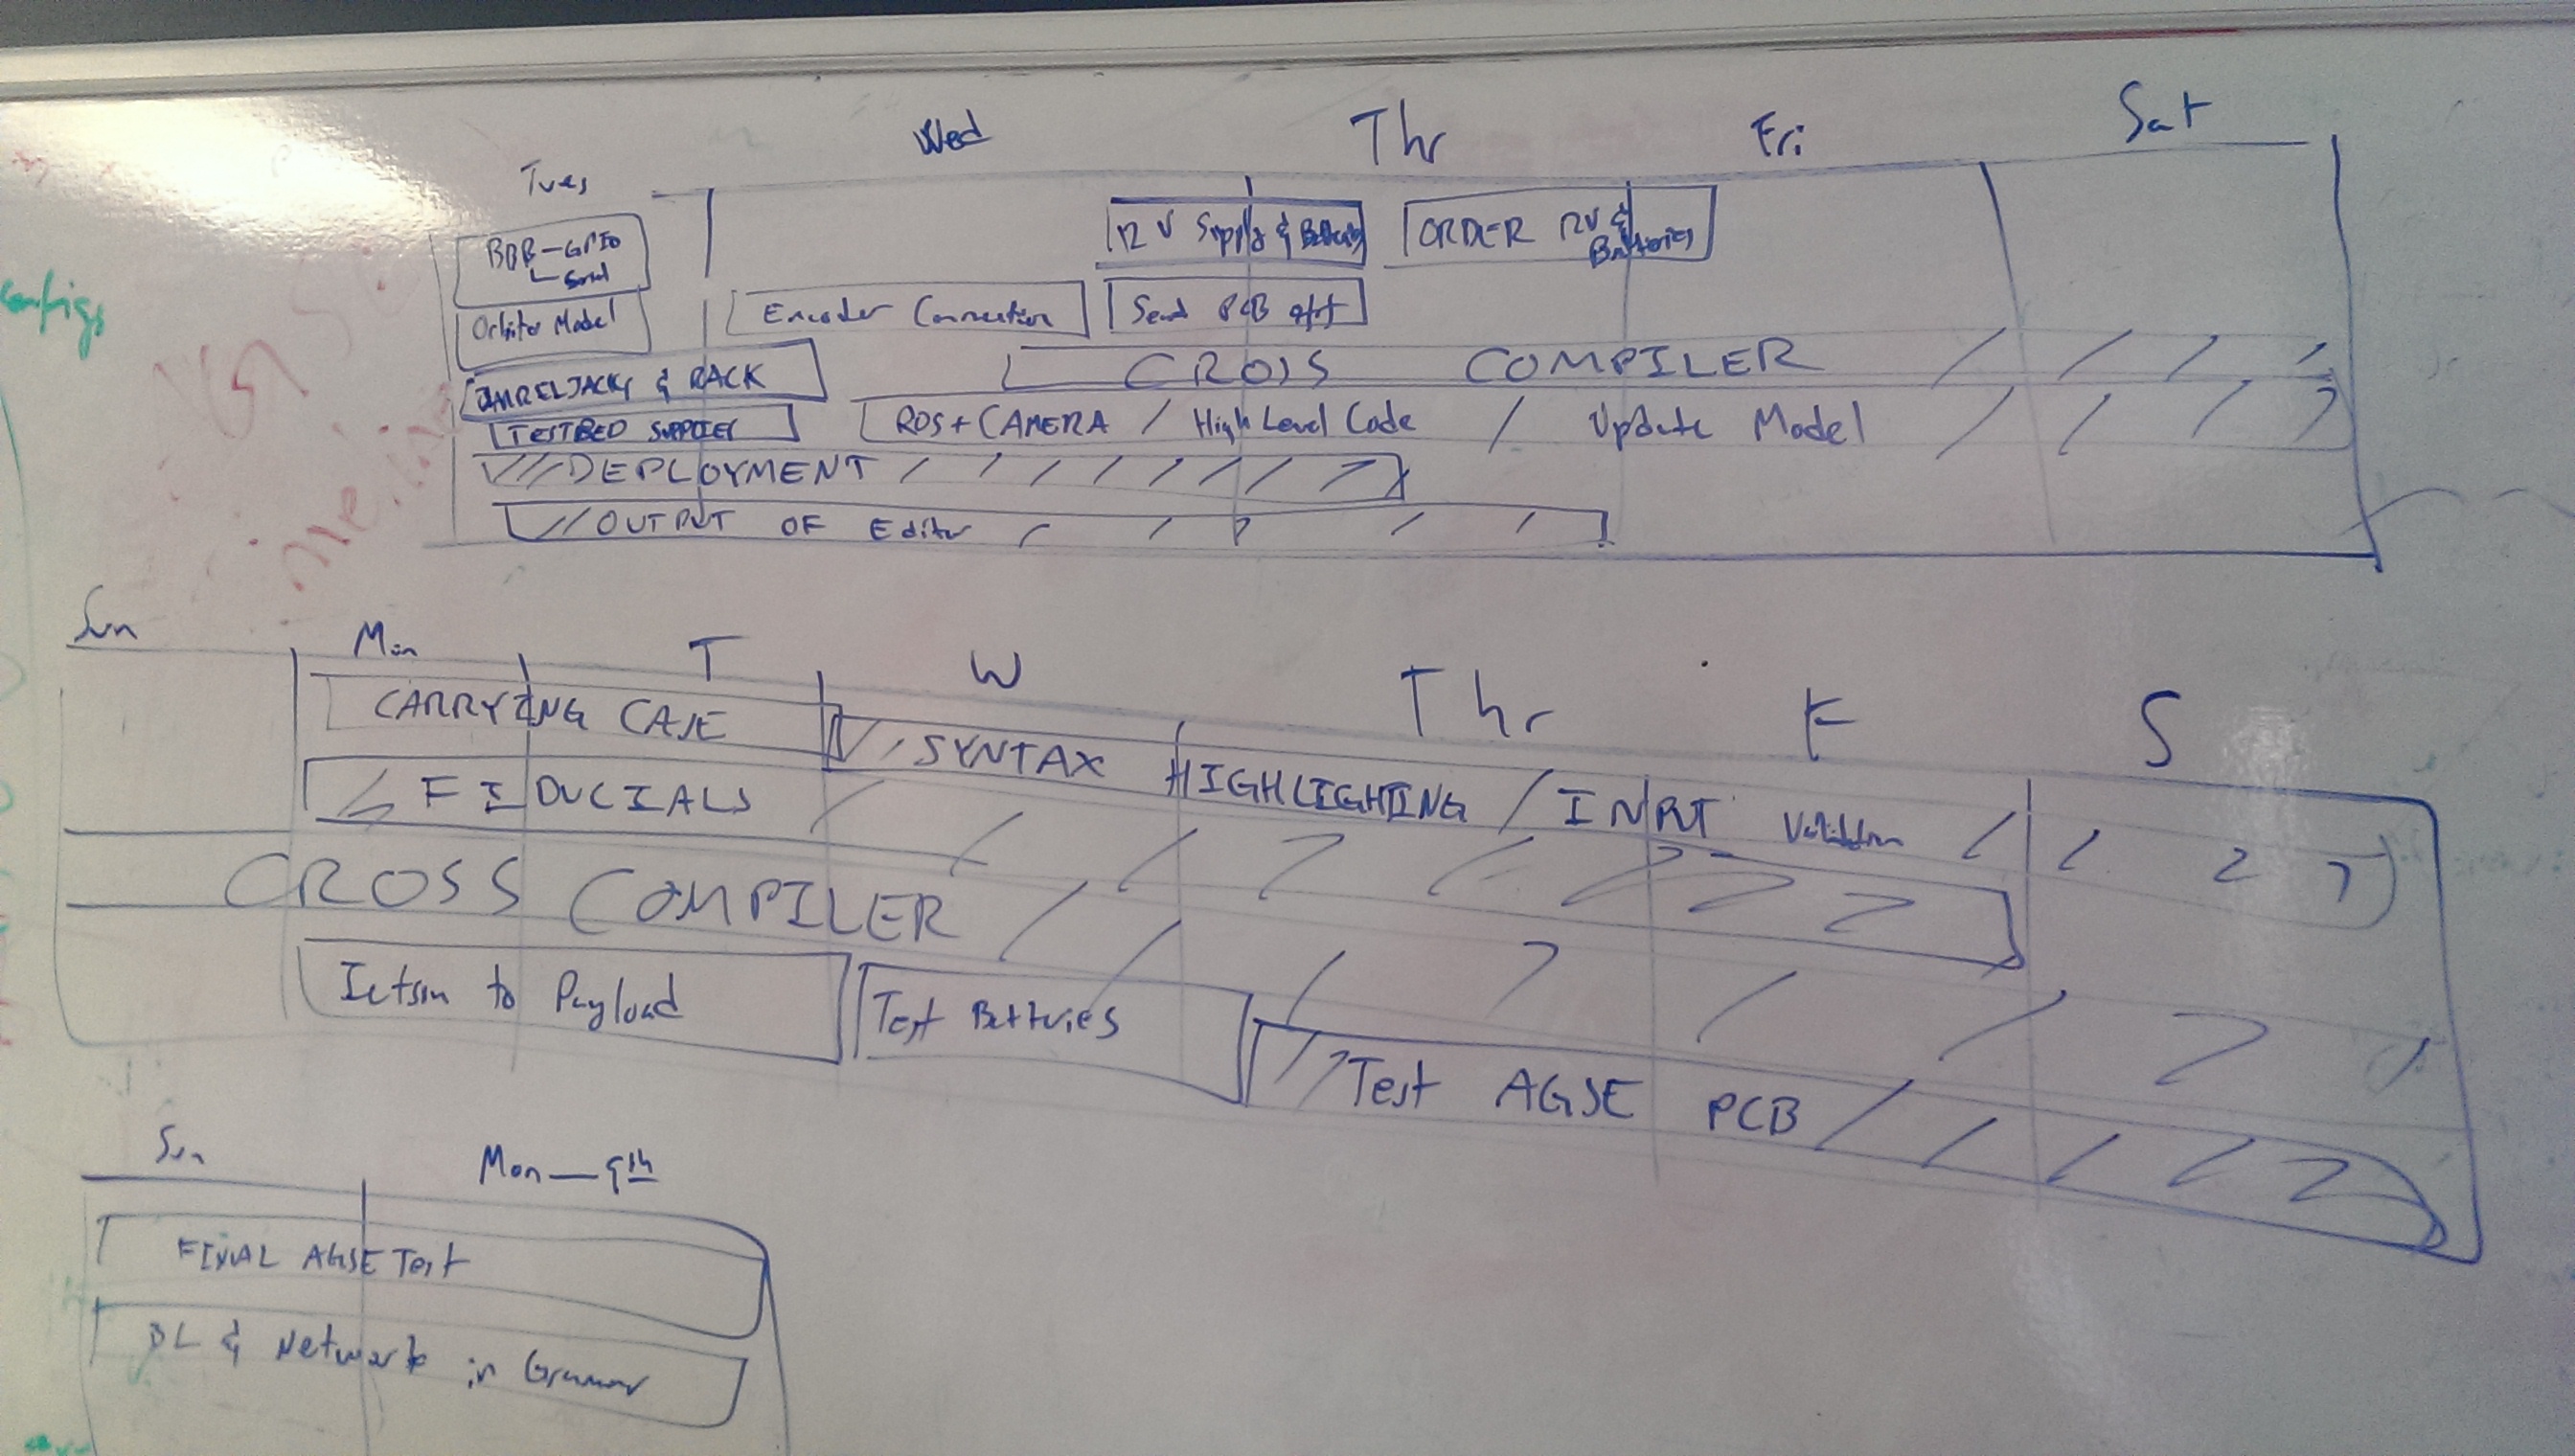 Tues Wed Thr Fri Sat
BBB-GPIO
Serial
12 V Supply & Battery
ORDER 12V &
Batteries
Orbiter Model
Encoder Connection
Send PCB off
CROSS COMPILER
& RACK
TESTBED SUPPLIES
ROS + CAMERA / High Level Code / Update Model
DEPLOYMENT
OUTPUT OF Editor
configs
Sun Mon T W Thr F S
CARRYING CASE
SYNTAX HIGHLIGHTING / INPUT Validation
FIDUCIALS
CROSS COMPILER
Jetson to Payload
Test Batteries
Test AGSE PCB
Sun Mon — 9th
FINAL AGSE Test
DL & Network in Grammar